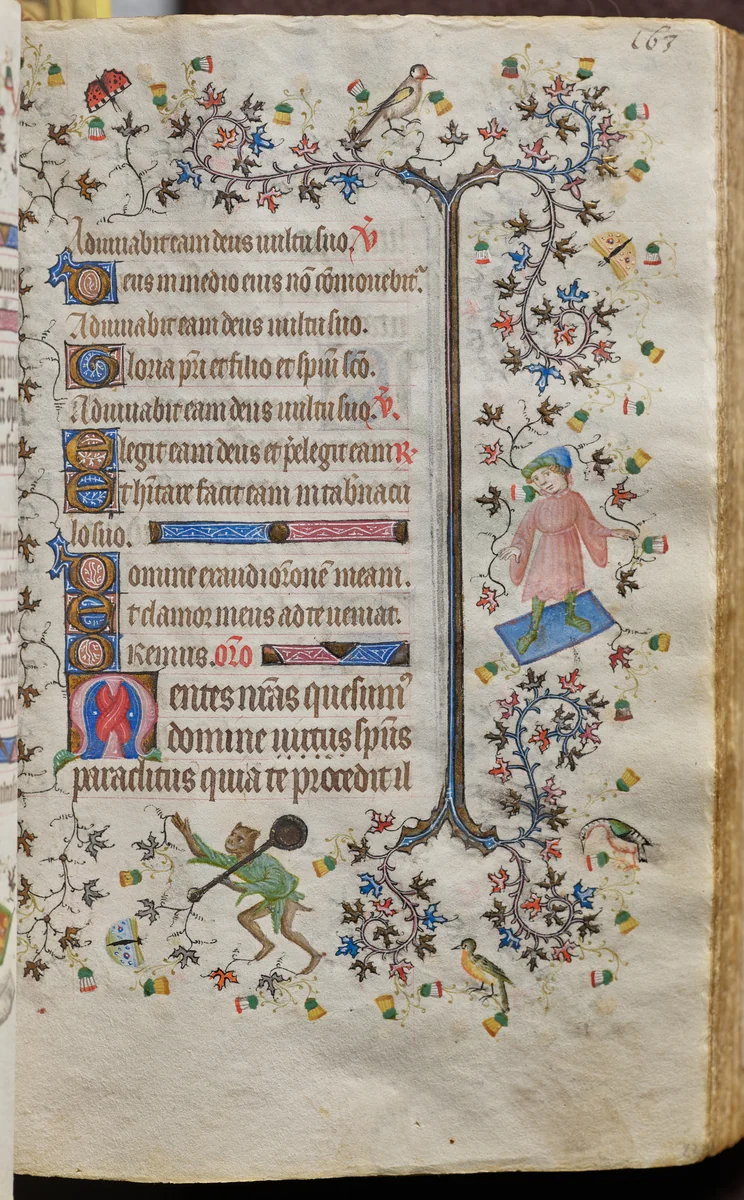 163
Adiuuabit eam deus uultu suo. V̄
Deus in medio eius nō cōmouebit᷑
Adiuuabit eam deus uultu suo.
Gloria pr̄i et filio et spiui sc̄o.
Adiuuabit eam deus uultu suo. V̄.
Elegit eam deus et p̄elegit eam R.
Et hītare facit eam in tab̄nacu
lo suo.
Domine exaudi or̄onē meam.
Et clamor meus ad te ueniat.
Oremus. or̄o
Mentes nr̄as quesumꝰ
domine uirtus sp̄us
paraclitus quia te procedit il